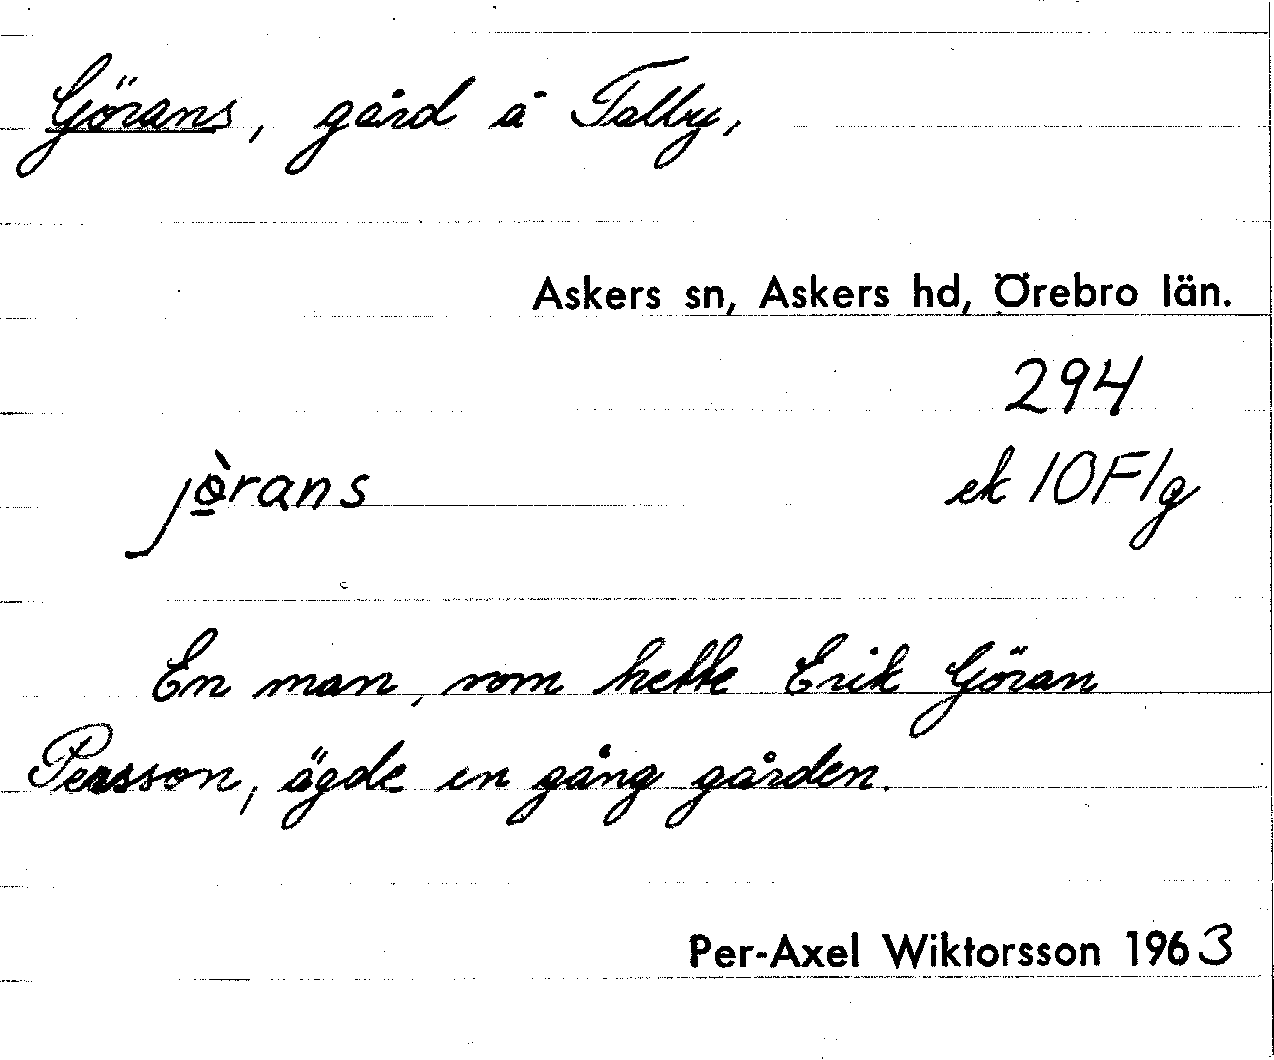 Görans, gård å Talby,
Askers sn, Askers hd, Örebro län.
294
jø̀rans
ek 10F/g
En man, som hette Erik Göran
Persson, ägde en gång gården.
Per-Axel Wiktorsson 1963